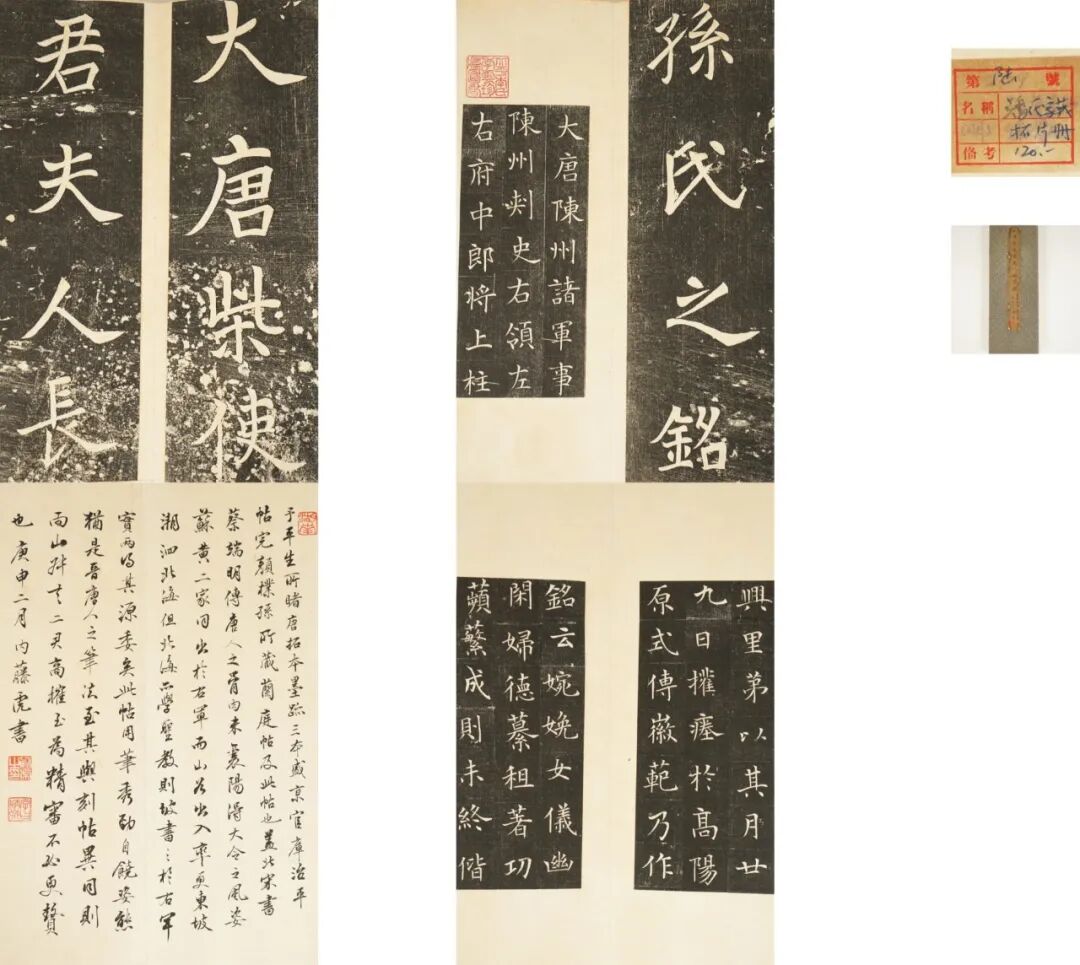 大唐柴使
君夫人長
孫氏之銘
大唐陳州諸軍事
陳州刾史右領左
右府中郎將上柱
予平生所睹唐拓本墨跡三本盛京官庫治平
帖完顏樸孫所藏蘭庭帖及此帖也蓋北宋書
蔡端明傳唐人之骨肉来襄陽得大令之風姿
蘇黃二家同出於右軍而山谷出入率更東坡
溯洄北海但北海亦學聖教則坡書之於右軍
實兩得其源委矣此帖用筆秀勁自饒姿態
猶是晉唐人之筆法至其與刻帖異同則
雨山二君高搉至為精審不必更贅
也庚申二月内藤虎書
興里第以其月廿
九日搉瘞於高陽
原式傳徽範乃作
銘云婉娩女儀幽
閑婦德綦組著功
蘋蘩成則未終偕
第陸號
名稱 拓片冊
備考 120.-